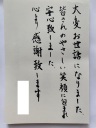 大変お世話になりました
皆さんのやさしい笑顔に包まれ
安心致しました
心より感謝致します